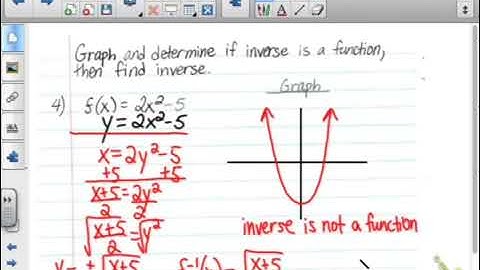 Graph and determine if inverse is a function,
then find inverse.
Graph
4) f(x) = 2x²-5
y = 2x²-5
x = 2y²-5
+5 +5
x+5 = 2y²
2 2
√(x+5)/2 = √y²
inverse is not a function
y = ±√x+5
f⁻¹(x) = √x+5